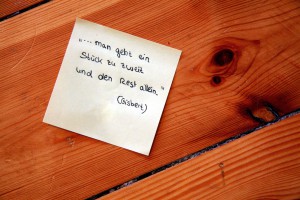 „... man geht ein
Stück zu zweit
und den Rest allein."
(Gisbert)